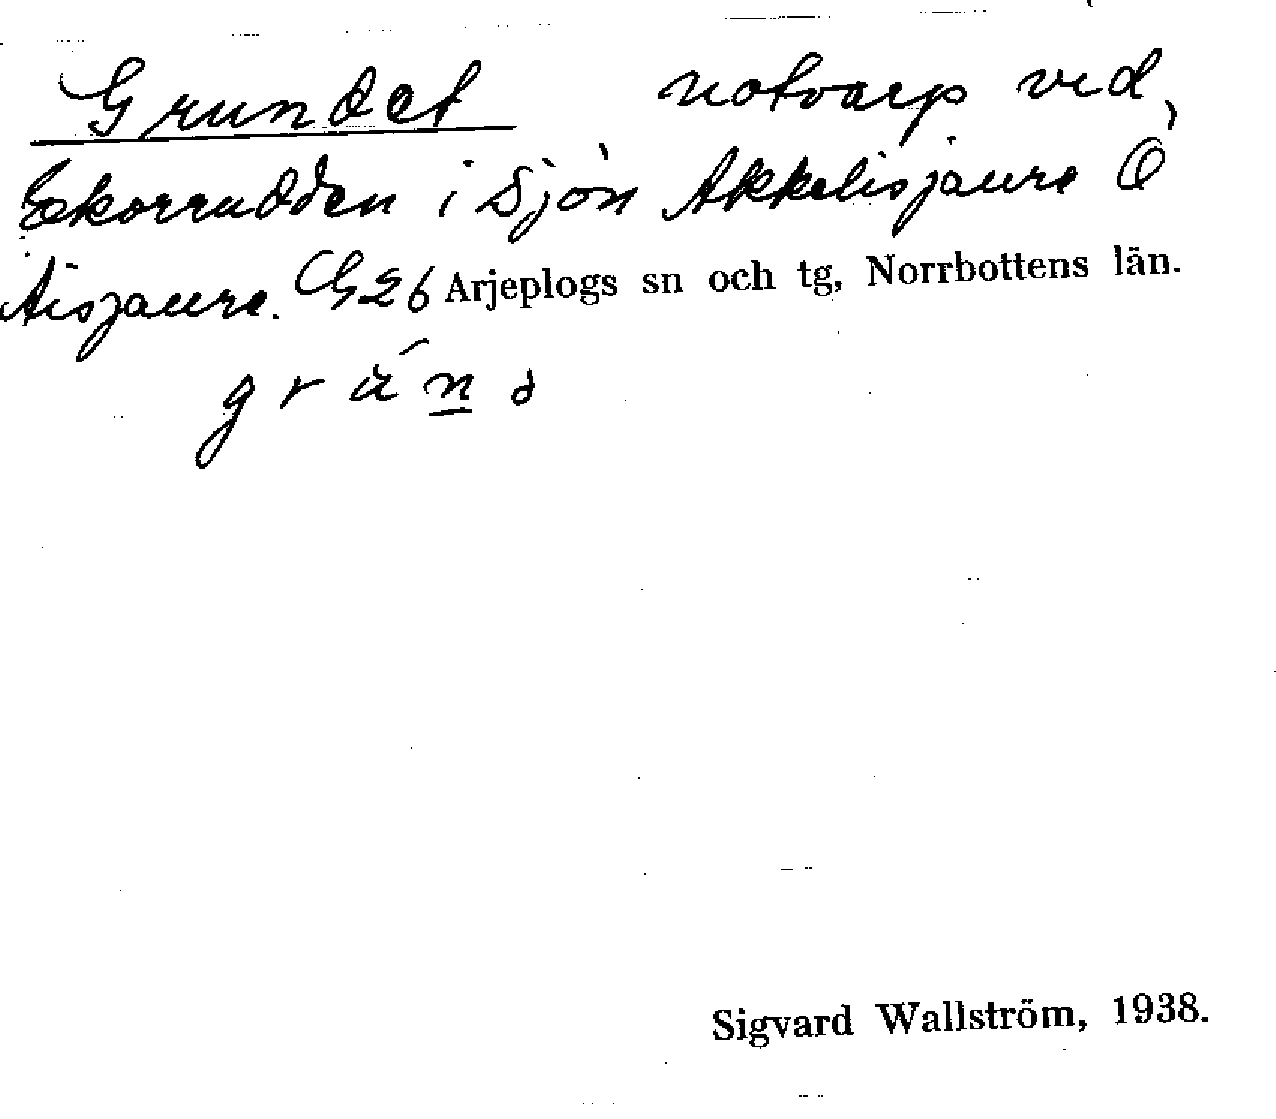 Grundet notvarp vid
Ekorrudden i sjön Akkelisjaure Ö
Aisjaure. G26 Arjeplogs sn och tg, Norrbottens län.
grän
Sigvard Wallström, 1938.